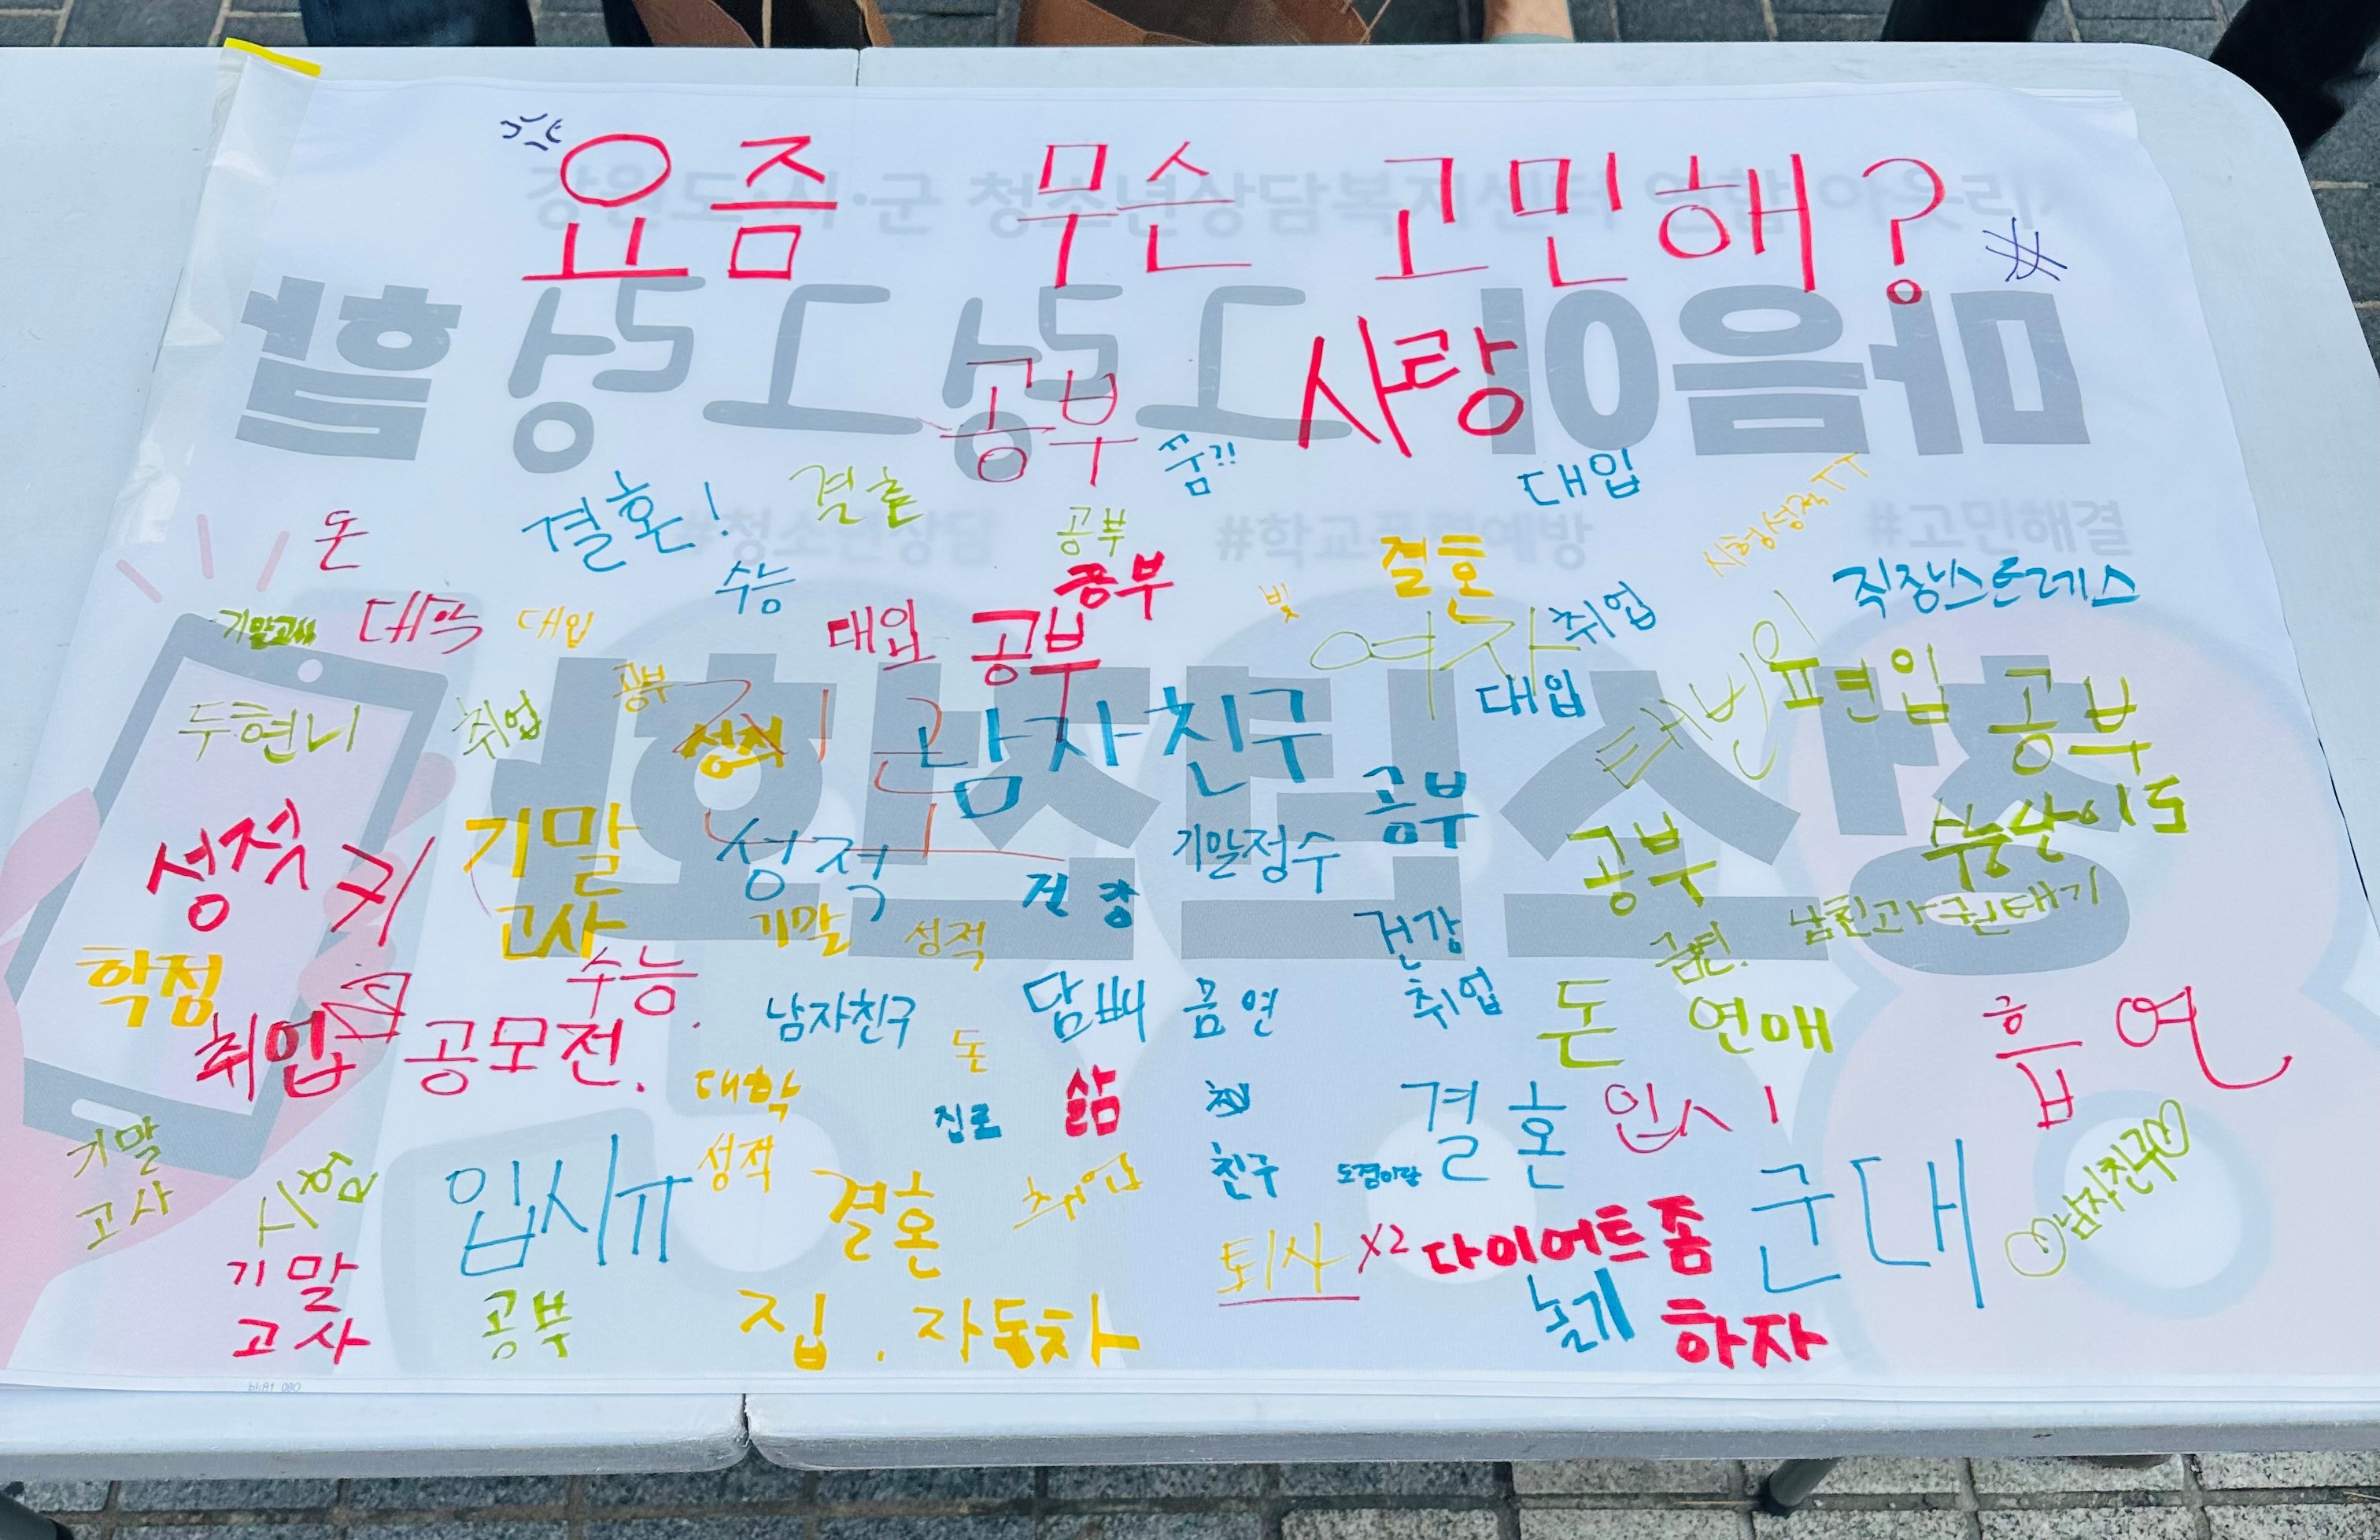 요즘 무슨 고민해?
사랑
공부
꿈?!
대입
시험성적ㅜㅜ
돈
결혼!
결혼
공부
#청소년상담
#고민해결
수능
공부
빚
결혼
취업
직장스트레스
기말고사
대학
대입
대입
공부
여자
공부
두현니
취업
성적
남자친구
대입
편입
공부
성적
키
기말
고사
성적
기말점수
공부
공부
수능난이도
건강
기말
성적
건강
남친과 권태기
금연.
학점
수능.
취업
공모전.
남자친구
돈
담배
금연
취업
돈
연애
흡연
금
대학
진로
삶
결혼
입시
기말
고사
시험
입시ㅠ
성적
결혼
취업
친구
도경이랑
군대
남자친구
퇴사 x2
다이어트 좀
하자
놀기
기말
고사
공부
집. 자동차